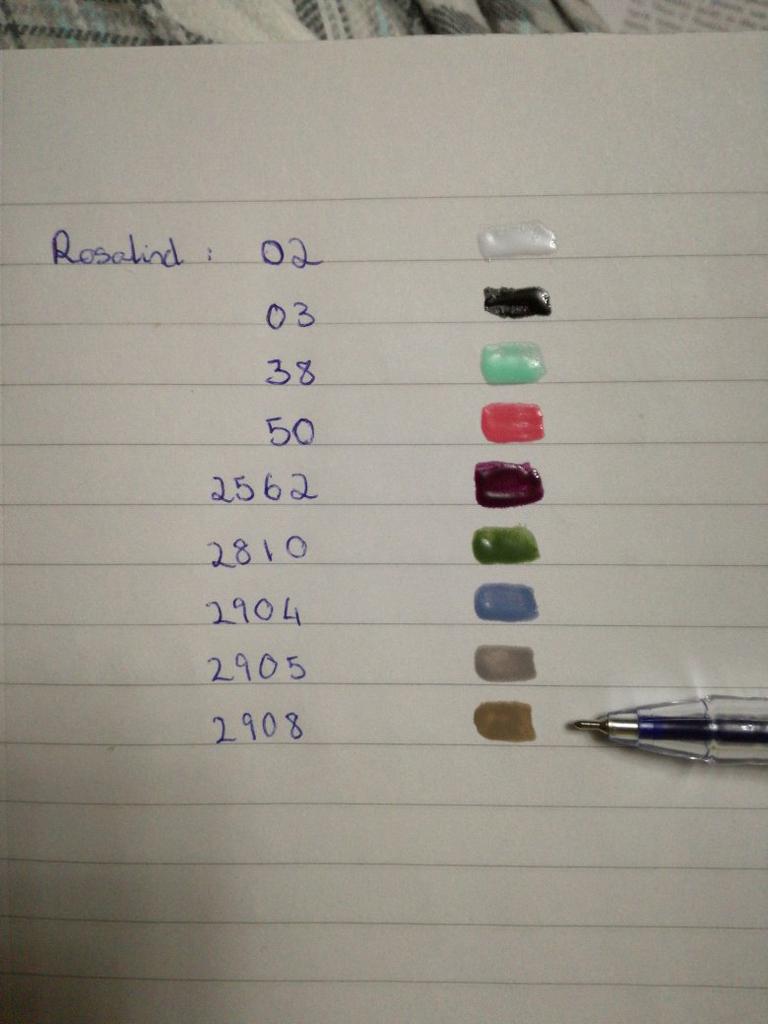 Rosalind : 02
03
38
50
2562
2810
2904
2905
2908